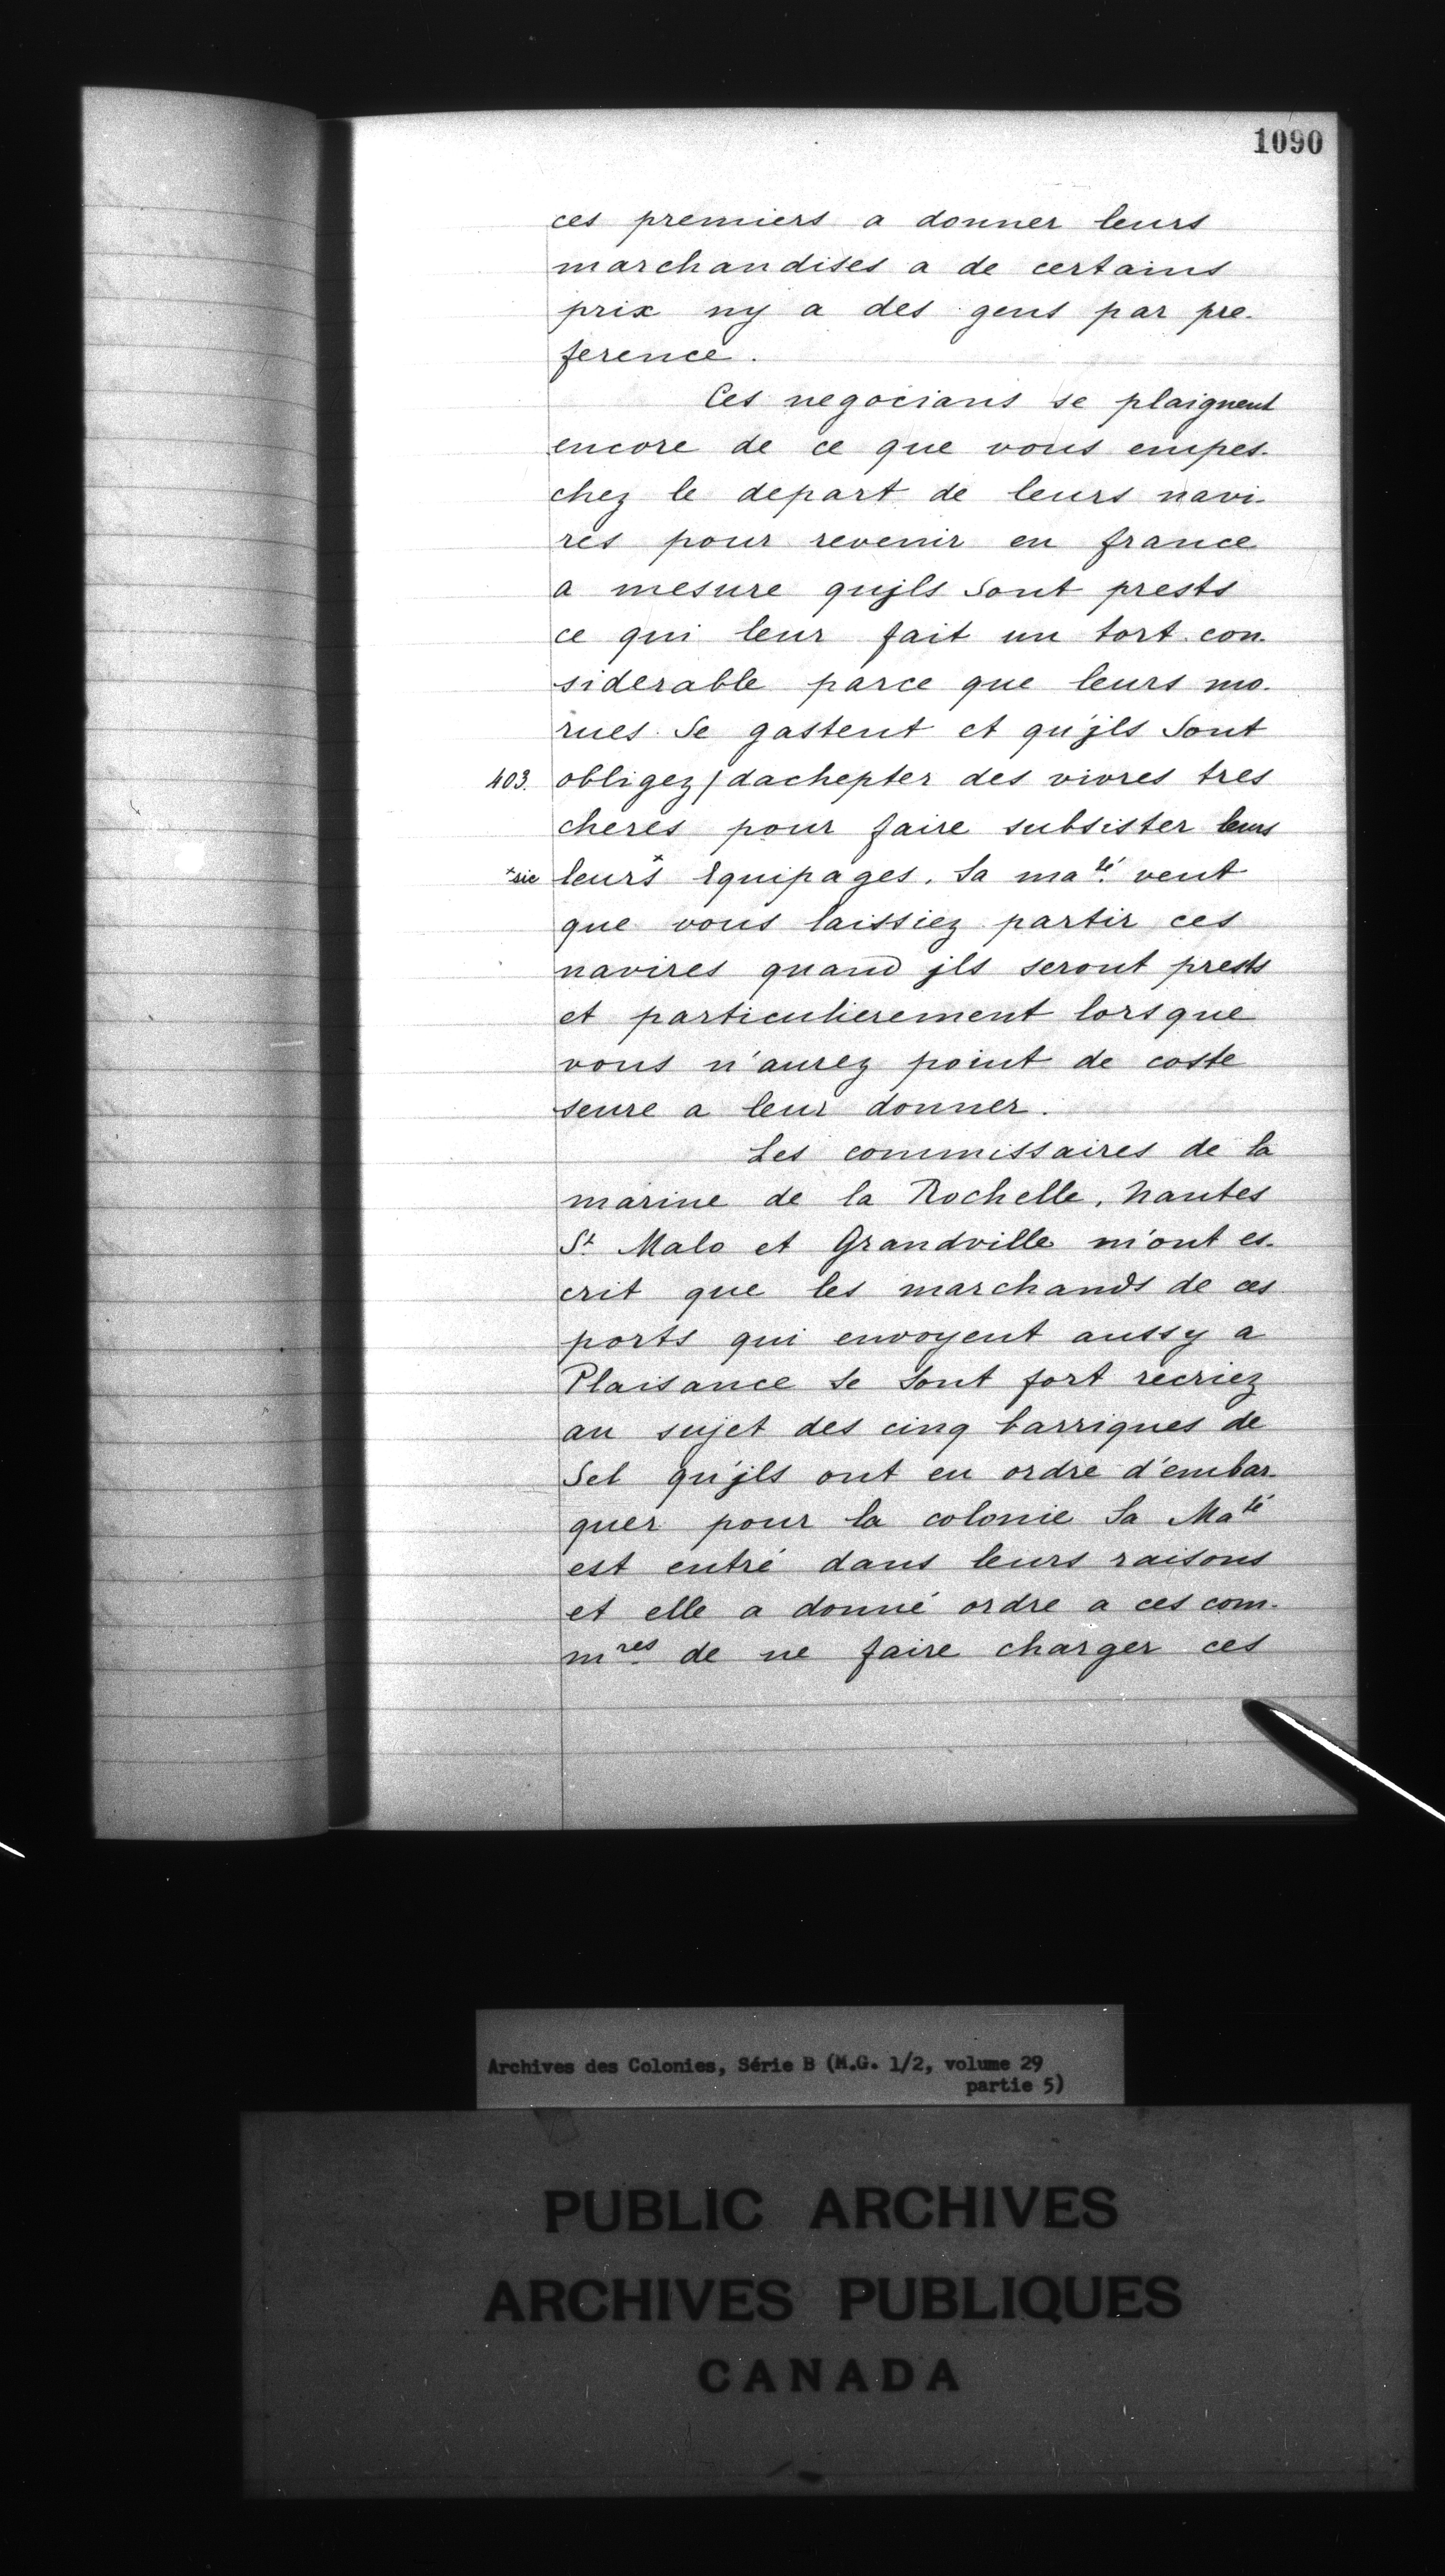 1090
ces premiers a donner leurs
marchandises a de certains
prix ny a des gens par pre-
ference.
Ces negocians se plaignent
encore de ce que vous empes-
chez le depart de leurs navi-
res pour revenir en france
a mesure qujls sont prests
ce qui leur fait un tort con-
siderable parce que leurs mo-
rues se gastent et qu'jls sont
403. obligez / dachepter des vivres tres
cheres pour faire subsister leurs
+sic leurs+ Equipages. Sa ma.té veut
que vous laissiez partir ces
navires quand jls seront prests
et particulierement lorsque
vous n'aurez point de coste
seure a leur donner.
Les commissaires de la
marine de la Rochelle, Nantes
St Malo et Grandville m'ont es-
crit que les marchands de ces
ports qui envoyent aussy a
Plaisance se sont fort recriez
au sujet des cinq barriques de
Sel qu'jls ont eu ordre d'embar-
quer pour la colonie Sa Maté
est entré dans leurs raisons
et elle a donné ordre a ces com-
m.res de ne faire charger ces
Archives des Colonies, Série B (M.G. 1/2, volume 29
partie 5)
PUBLIC ARCHIVES
ARCHIVES PUBLIQUES
CANADA